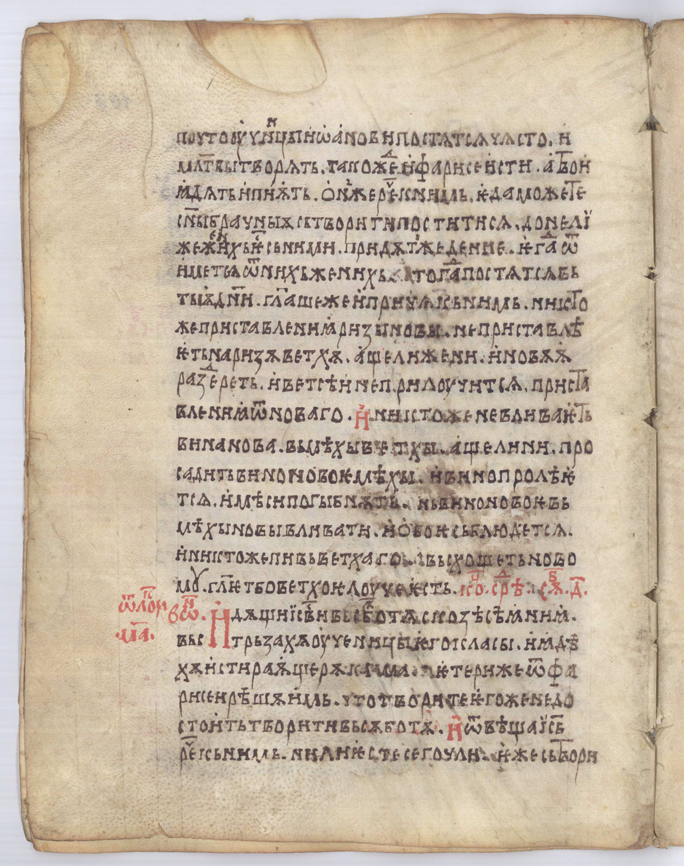 почто оучн҃ци їѡановѝ постѧтсѧ чѧсто. и҆
мл҃твы творѧть. такожде и҆ фарисеисти. а твои
ꙗдѧть и пиѫть. Онже реч҃ к нимь. еда можете
сн҃ы брачныѧ сътворити поститисѧ. донелї
же женихь ѥсть с ними. прїидѫт же денїе. ѥгда ѿ
иметсѧ ѿ нихь женихь. тогда постѧтсѧ вь
тыѧ дн҃и. гл҃аше же и притчѧ кь нимь. никто
же приставленїꙗ ризы новы. не приставлѣ
ѥть на ризѫ ветхѫ. аще ли же ни. и новѫѧ
раздереть. и ветсѣи не прилоучитсѧ. приста
вленїꙗ ѿ новаго. И҆ никтоже не вливаѥть
вина нова. вь мѣхы ветхы. аще ли ни. про
садить вино новое мѣхы. и вино пролѣѥ
тсѧ. и мѣси погыбнѫть. нь вино новое вь
мѣхы новы вливати. и обоѥ съблюдетсѧ.
и никтоже пивь ветхаго. абїе хощеть ново
моу. гл҃еть бо ветхоѥ лоуче ѥсть. ко. срѣ. сѫ. д҃.
ѿ лоук
ма.
въ ѡн.
вьс
Идѧши іс҃ви вь сѫботѫ сквозѣ сѣꙗниꙗ.
трьзахѫ оученици ѥго класы. и ꙗдѣ
хѫ истираѭще рѫкама. етери же ѿ фа
рисеи рѣшѫ имь. что творите ѥгоже не до
стоить творити вь сѫботѫ. И҆ ѿвѣща іс҃ь
реч҃ кь нимь. ни ли ѥсте сего чули. еже сътвори